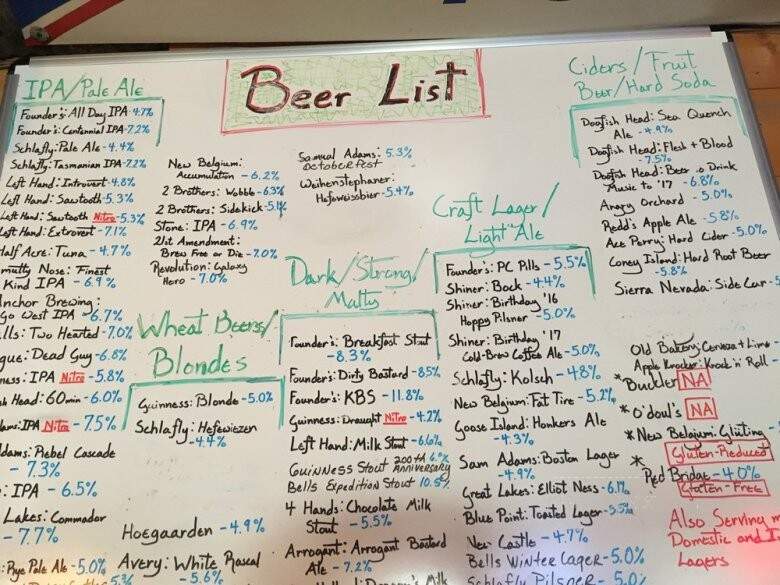 Beer List
IPA/Pale Ale
Founder's: All Day IPA - 4.7%
Founder's: Centennial IPA - 7.2%
Schlafly: Pale Ale - 4.4%
Schlafly: Tasmanian IPA - 7.2%
Left Hand: Introvert - 4.8%
Left Hand: Sawtooth - 5.3%
Left Hand: Sawtooth Nitro - 5.3%
Left Hand: Extrovert - 7.1%
Half Acre: Tuna - 4.7%
Nose: Finest
Kind IPA - 6.9%
nchor Brewing:
Go West IPA - 6.7%
lls: Two Hearted - 7.0%
gue: Dead Guy - 6.8%
ness: IPA Nitro - 5.8%
sh Head: 60min - 6.0%
ams: IPA Nitro - 7.5%
dams: Rebel Cascade
- 7.3%
: IPA - 6.5%
Lakes: Commodor
- 7.7%
: Rye Pale Ale - 5.0%
5.3%
New Belgium:
Accumulation - 6.2%
2 Brothers: Wobble - 6.3%
2 Brothers: Sidekick - 5.1%
Stone: IPA - 6.9%
21st Amendment:
Brew Free or Die - 7.0%
Revolution: Galaxy
Hero - 7.0%
Samual Adams: 5.3%
OCTOBERFEST
Weihenstephaner:
Hefeweissbier - 5.4%
Wheat Beers/
Blondes
Guinness: Blonde - 5.0%
Schlafly: Hefewiezen
- 4.4%
Hoegaarden - 4.9%
Avery: White Rascal
- 5.6%
Dark/Strong/
Malty
Founder's: Breakfast Stout
- 8.3%
Founder's: Dirty Bastard - 8.5%
Founder's: KBS - 11.8%
Guinness: Draught Nitro - 4.2%
Left Hand: Milk Stout - 6.0%
GUINNESS Stout 200TH ANNIVERSARY
Bells Expedition Stout 10.5%
4 Hands: Chocolate Milk
Stout - 5.5%
Arrogant: Arrogant Bastard
Ale - 7.2%
Milk
Craft Lager/
Light Ale
Founder's: PC Pils - 5.5%
Shiner: Bock - 4.4%
Shiner: Birthday '16
Hoppy Pilsner - 5.0%
Shiner: Birthday '17
Cold-Brew Coffee Ale - 5.0%
Schlafly: Kolsch - 4.8%
New Belgium: Fat Tire - 5.2%
Goose Island: Honkers Ale
- 4.3%
Sam Adams: Boston Lager
- 4.9%
Great Lakes: Elliot Ness - 6.1%
Blue Point: Toasted Lager - 5.5%
New Castle - 4.7%
Bells Winter Lager - 5.0%
Schlafly Pilsner - 5.0
Ciders/Fruit
Beer/Hard Soda
Dogfish Head: Sea Quench
Ale - 4.9%
Dogfish Head: Flesh + Blood
- 7.5%
Dogfish Head: Beer to Drink
Music to '17 - 6.8%
Angry Orchard - 5.0%
Redd's Apple Ale - 5.8%
Ace Perry: Hard Cider - 5.0%
Coney Island: Hard Root Beer
- 5.8%
Sierra Nevada: Side Car - 5
Old Bakery: Cerveza + Lime -
Apple Knocker: Knock 'n' Roll -
*Buckler NA
*O'doul's NA
*New Belgium: Glüting -
Gluten-Reduced
*Red Bridge - 4.0%
Gluten-Free
Also Serving
Domestic and I
Lagers